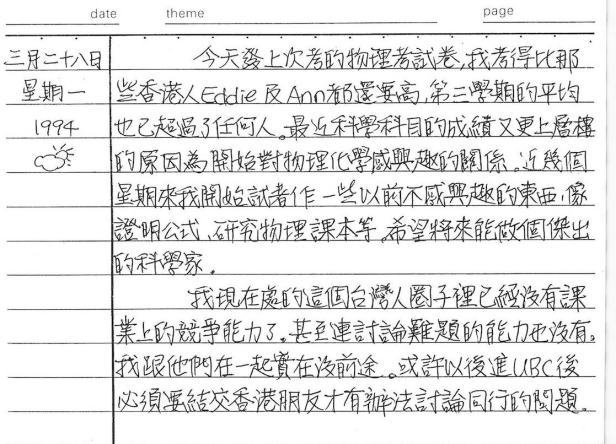 date theme page
三月二十八日
星期一
1994
今天發上次考的物理考試卷,我考得比那
些香港人Eddie及Ann都還要高,第三學期的平均
也已超過了任何人。最近科學科目的成績又更上層樓
的原因為開始對物理化學感興趣的關係。近幾個
星期來我開始試著作一些以前不感興趣的東西,像
證明公式、研究物理課本等。希望將來能做個傑出
的科學家。
我現在處的這個台灣人圈子裡已經沒有課
業上的競爭能力了。甚至連討論難題的能力也沒有。
我跟他們在一起實在沒前途。或許以後進UBC後
必須要結交香港朋友才有辦法討論同行的問題。